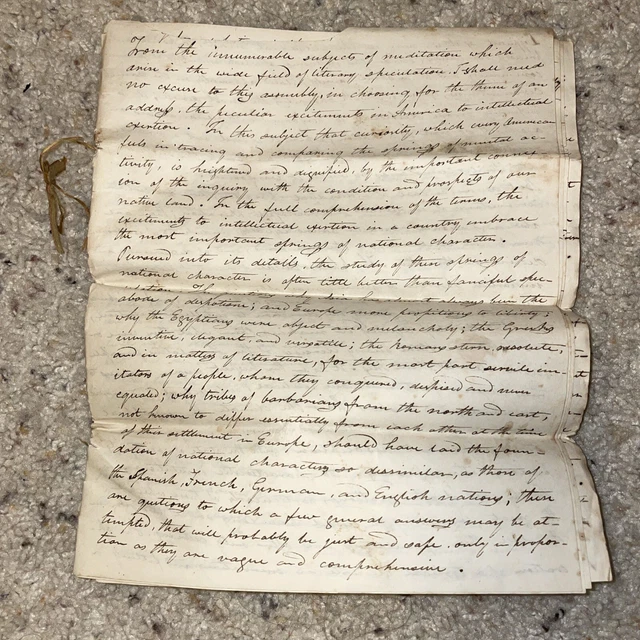 of
from the innumerable subjects of meditation which
arise in the wide field of literary speculation. I shall need
no excuse to this assembly, in choosing, for the theme of an
address, the peculiar excitements in America to intellectual
exertion. In this subject that curiosity, which every American
feels in tracing and comparing the springs of mental ac-
tivity, is heightened and dignified, by the important connex-
ion of the inquiry with the condition and prospects of our
native land. In the full comprehension of the terms, the
excitements to intellectual exertion in a country embrace
the most important springs of national character.
Pursued into its details, the study of these springs of
national character is often little better than fanciful spe-
always been the
abode of despotism; and Europe more propitious to liberty;
why the Egyptians were abject and melancholy; the Greeks
inventive, elegant, and versatile; the Romans stern, resolute,
and in matters of literature, for the most part servile im-
itators of a people, whom they conquered, despised and never
equaled; why tribes of barbarians from the north and east,
not known to differ essentially from each other at the time
of their settlement in Europe, should have laid the foun-
dation of national characters so dissimilar, as those of
the Spanish, French, German, and English nations; these
are questions to which a few general answers may be at-
tempted, that will probably be just and safe, only in propor-
tion as they are vague and comprehensive.